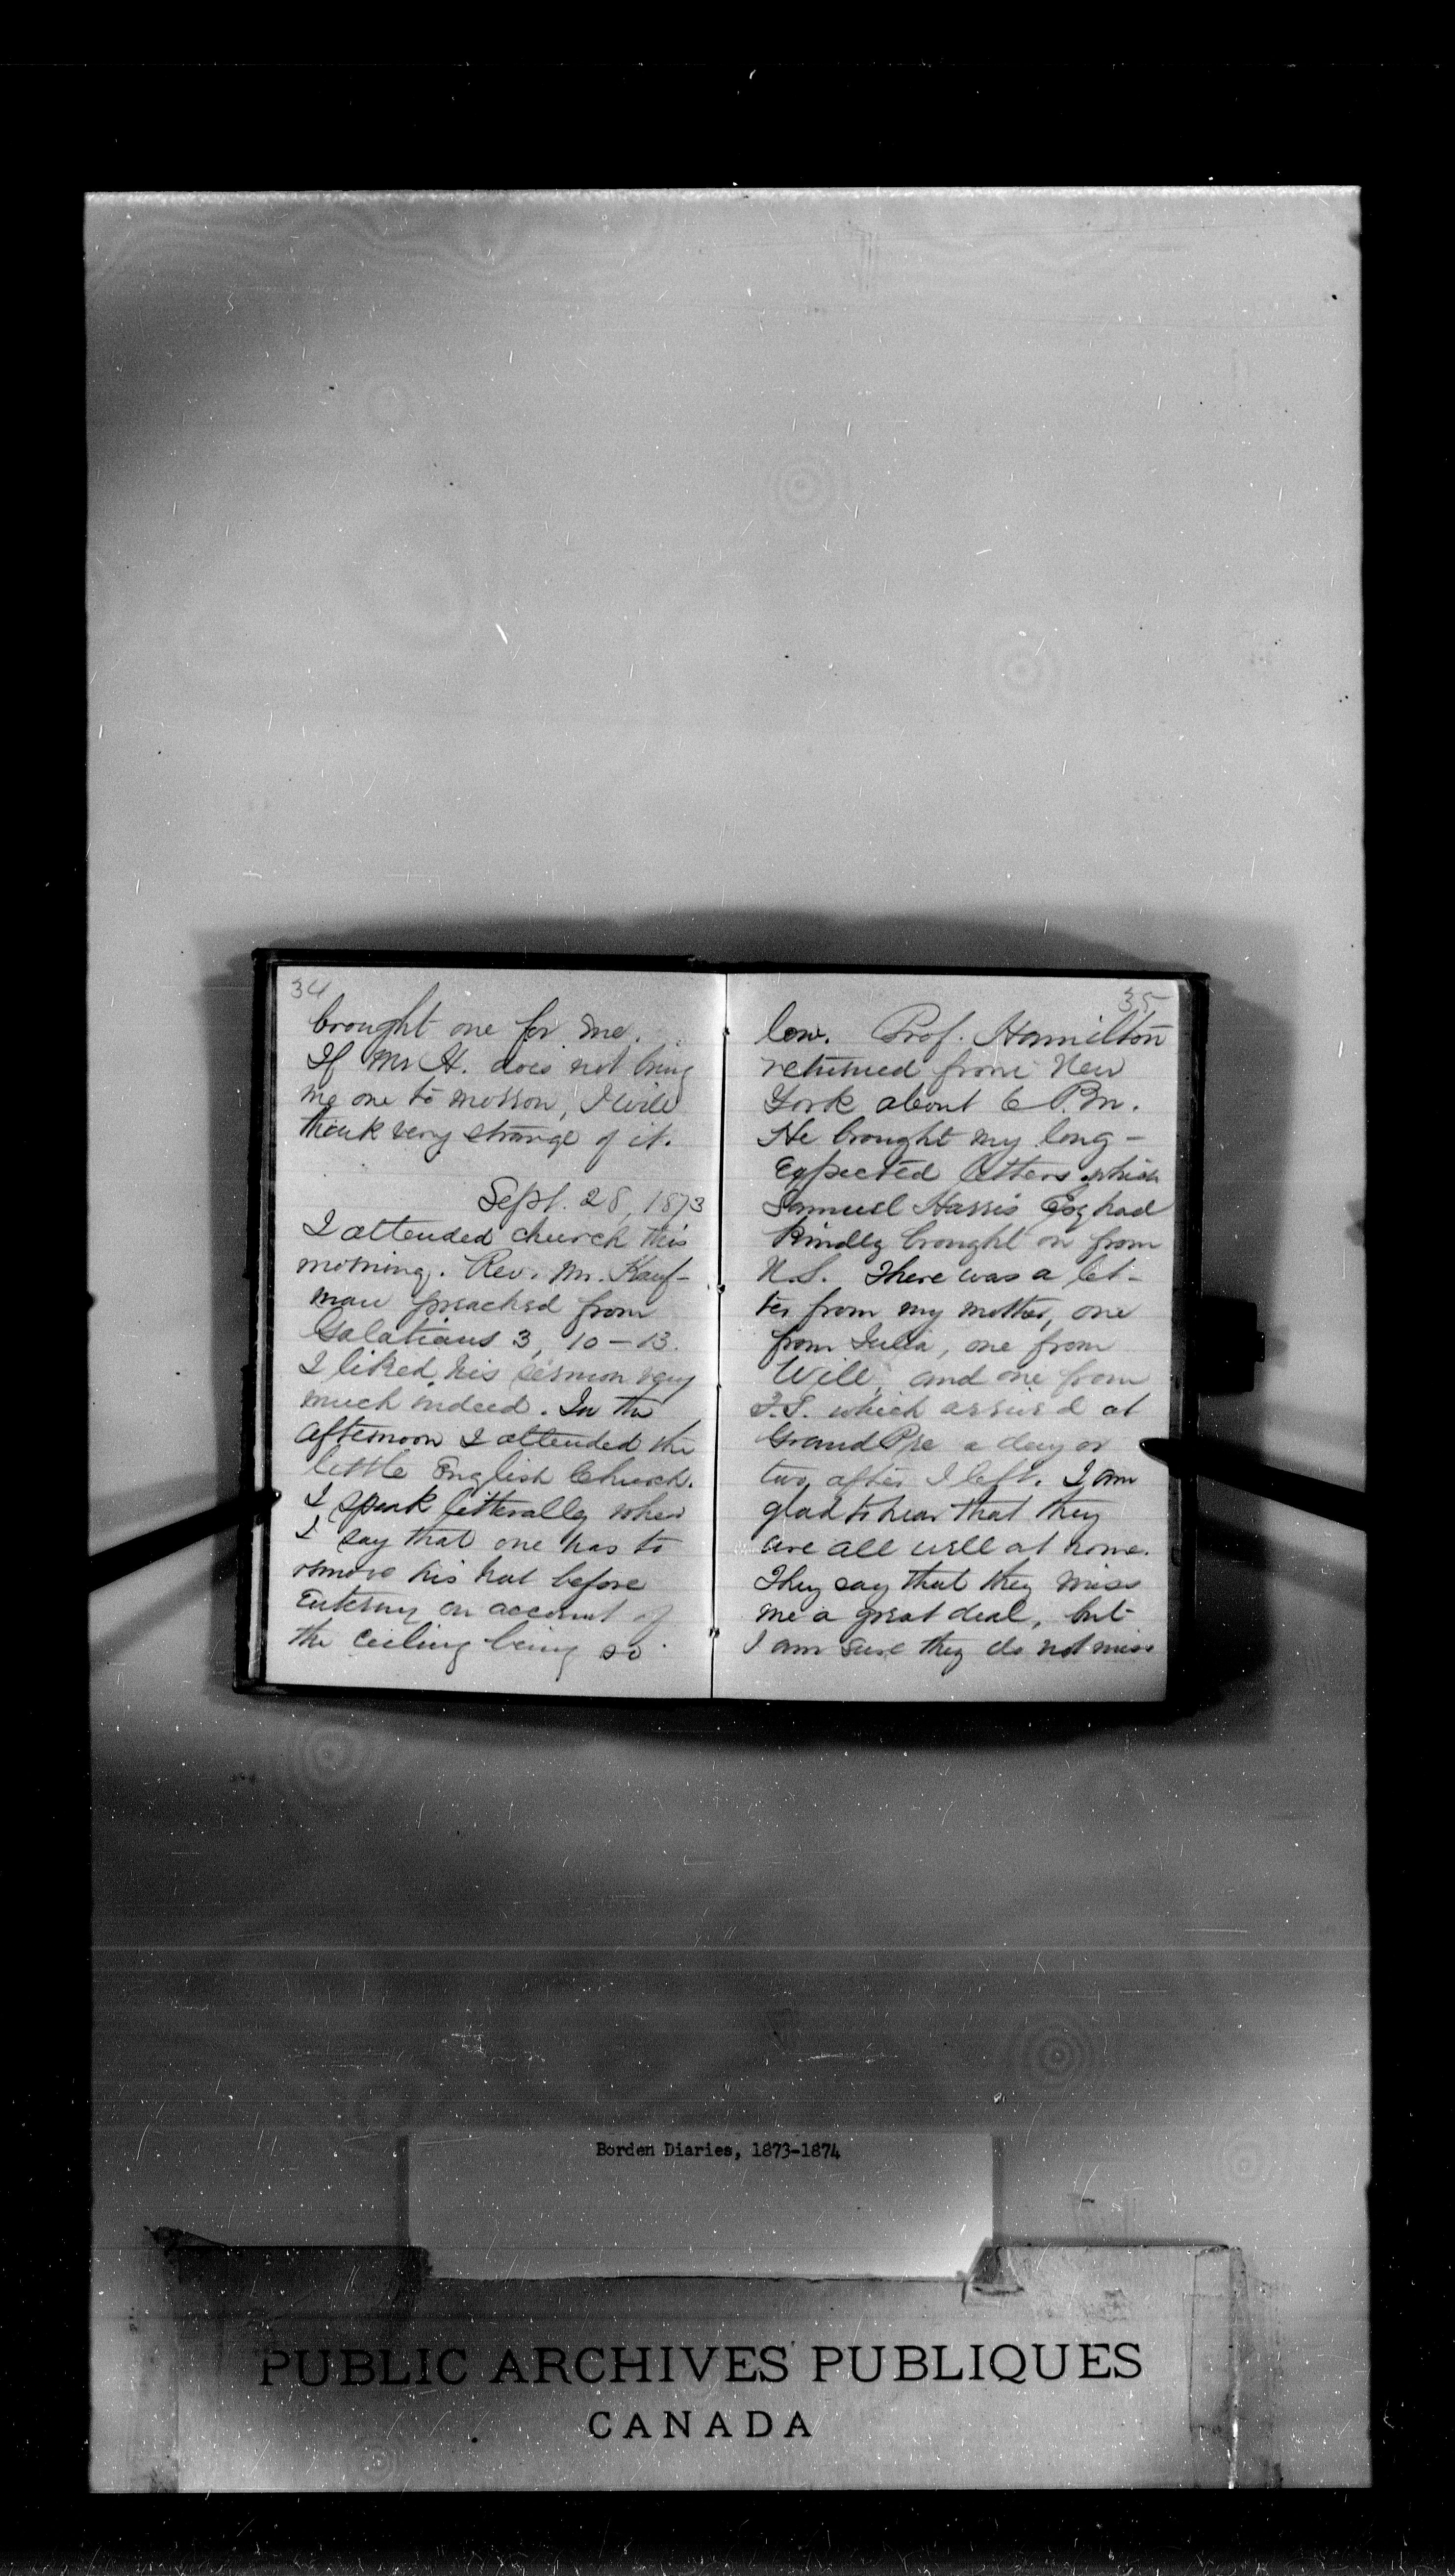 34
brought one for me.
If Mr H. does not bring
me one to morrow, I will
think very strange of it.
Sept. 28, 1873
I attended church this
morning. Rev. Mr. Kauf-
man preached from
Galatians 3, 10-13.
I liked his sermon very
much indeed. In the
afternoon I attended the
little English Church.
I speak litterally when
I say that one has to
remove his hat before
entering on account of
the ceiling being so
35
low. Prof. Hamilton
returned from New
York about 6 P.m.
He brought my long-
expected letters which
Samuel Harris Esq had
kindly brought on from
N.S. There was a let-
ter from my mother, one
from Julia, one from
Will, and one from
which arrived at
Grand Pre a day or
two after I left. I am
glad to hear that they
are all well at home.
They say that they miss
me a great deal, but
I am sure they do not miss
Borden Diaries, 1873-1874
PUBLIC ARCHIVES PUBLIQUES
CANADA